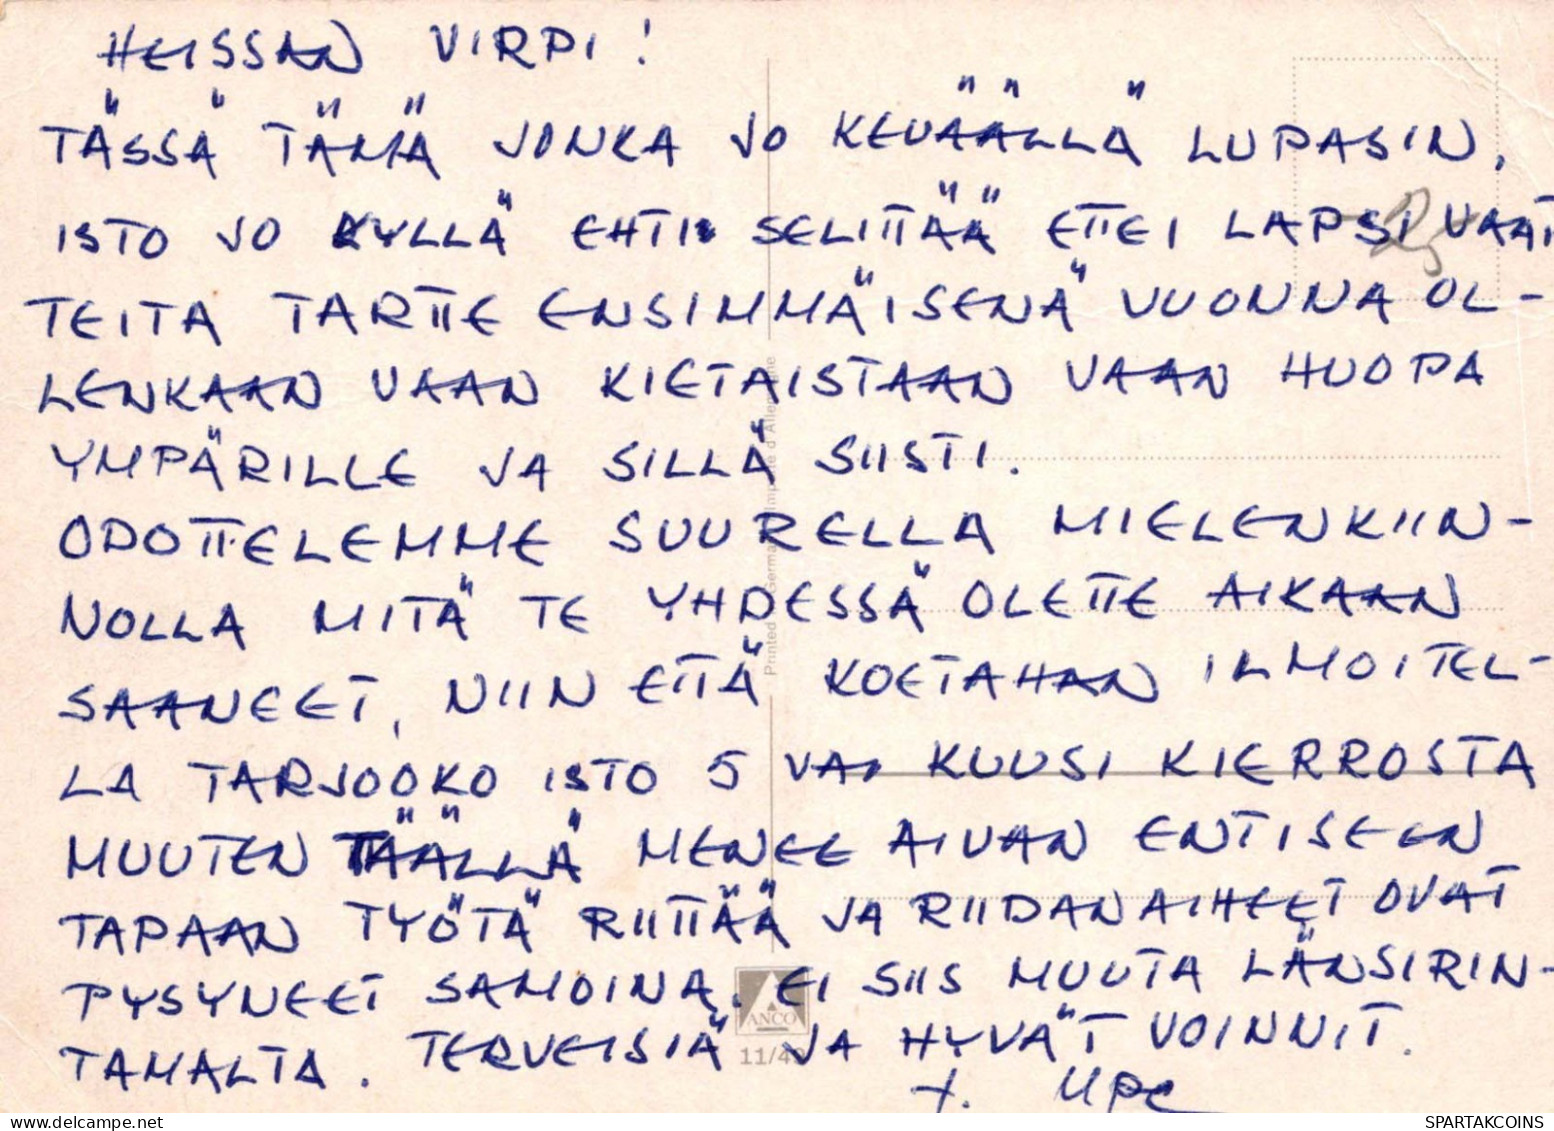 HEISSAN VIRPI!
TÄSSÄ TÄMÄ JONKA JO KEVÄÄLLÄ LUPASIN,
ISTO JO KYLLÄ EHTII SELITTÄÄ ETTEI LAPSI VAAT
TEITA TARTTE ENSIMMÄISENÄ VUONNA OL-
LENKAAN VAAN KIETAISTAAN VAAN HUOPA
YMPÄRILLE JA SILLÄ SIISTI.
ODOTTELEMME SUURELLA MIELENKIIN-
NOLLA MITÄ TE YHDESSÄ OLETTE AIKAAN
SAANEET, NIIN ETTÄ KOETAHAN ILMOITEL-
LA TARJOOKO ISTO 5 VAI KUUSI KIERROSTA
MUUTEN TÄÄLLÄ MENEE AIVAN ENTISEEN
TAPAAN TYÖTÄ RIITTÄÄ JA RIIDANAIHEET OVAT
PYSYNEET SAMOINA. EI SIIS MUUTA LÄNSIRIN-
TAMALTA. TERVEISIÄ JA HYVÄT VOINNIT.
T. UPE
Printed Germa Imprimé d'Allemagne
ANCO
11/4
SPARTAKCOINS